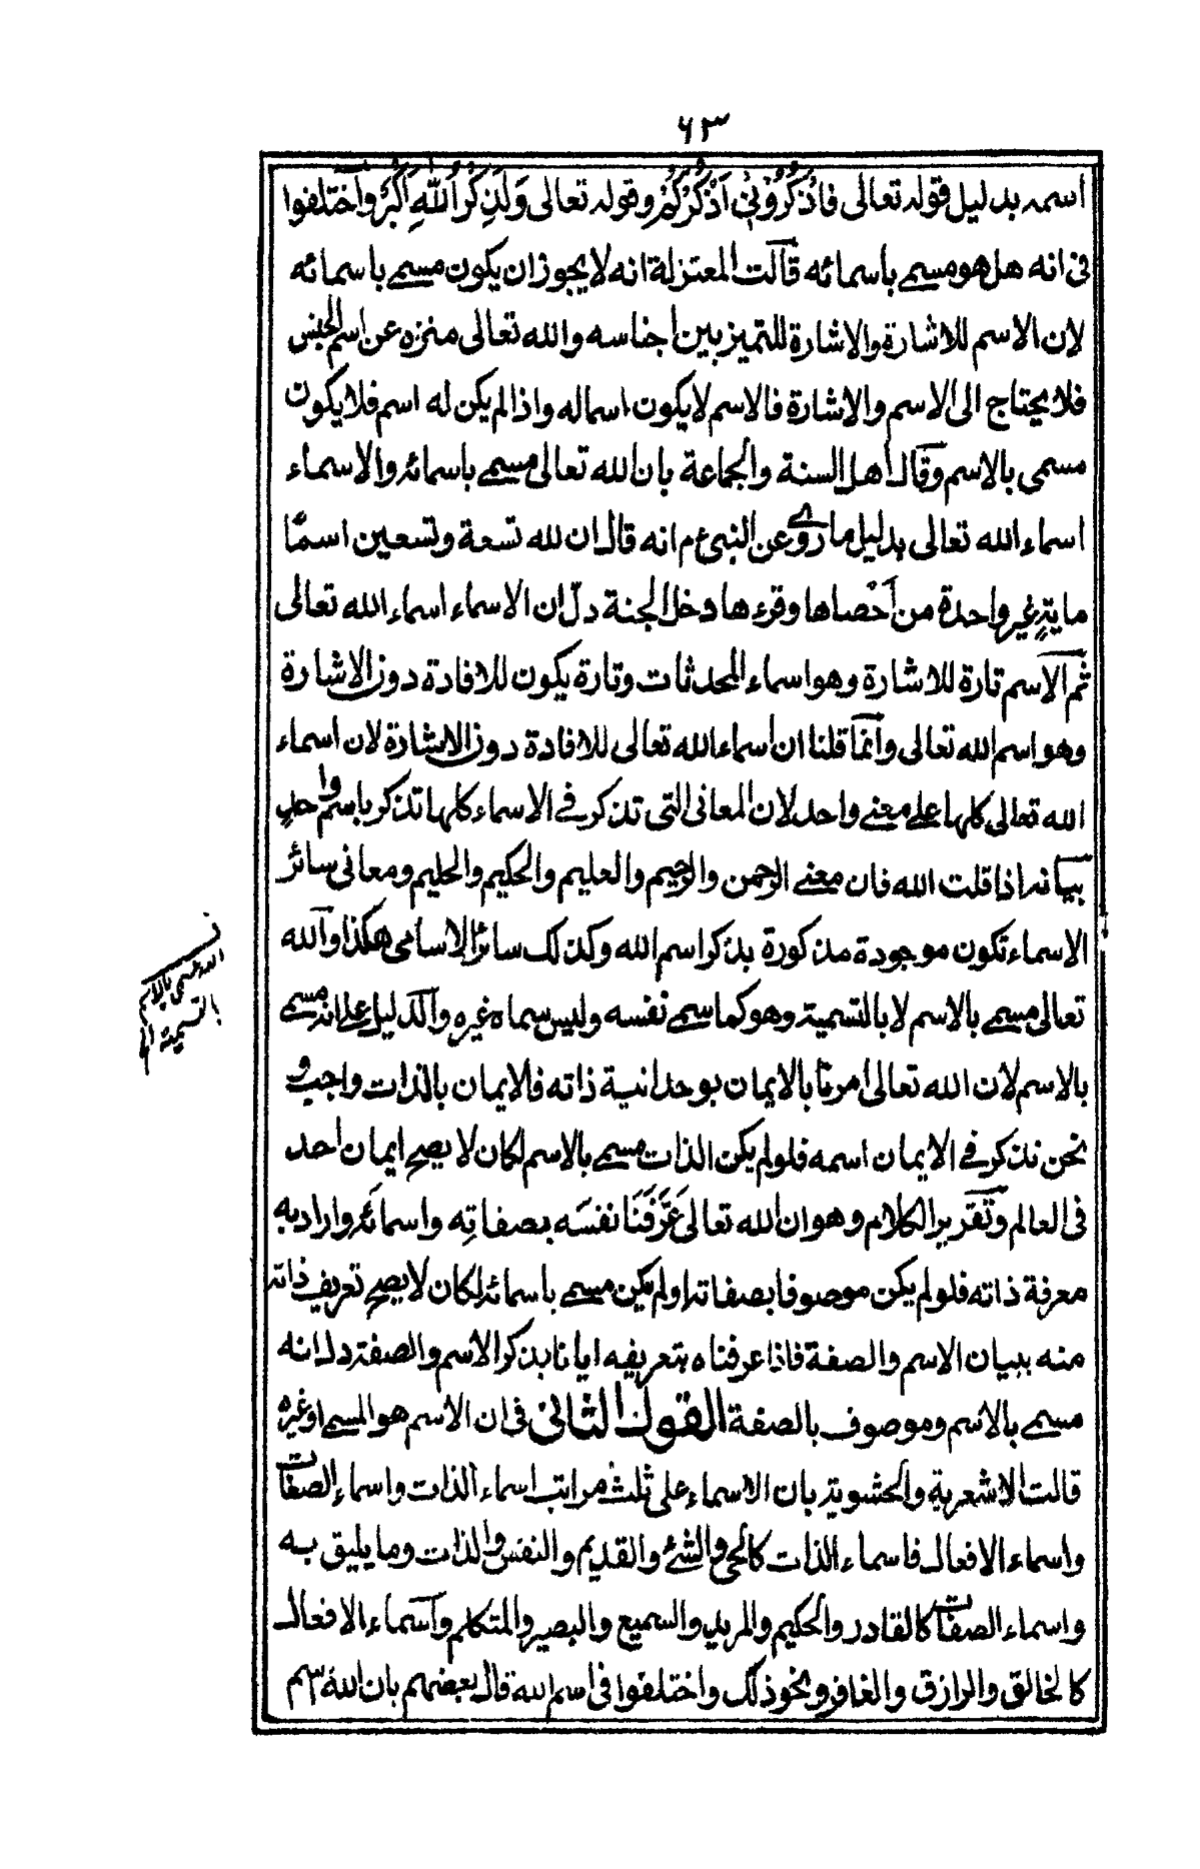 ٦٣
اسمه بدليل قوله تعالى فَاذْكُرُوْنِىْ اَذْكُرْكُمْ وقوله تعالى وَلَذِكْرُ اللّٰهِ اَكْبَرُ واختلفوا
فى انه هل هو مسمى باسمائه قالت المعتزلة انه لا يجوز ان يكون مسمى باسمائه
لان الاسم للاشارة والاشارة للتميز بين اجناسه والله تعالى منزه عن اسم الجنس
فلا يحتاج الى الاسم والاشارة فالاسم لا يكون اسما له واذا لم يكن له اسم فلا يكون
مسمى بالاسم وقال اهل السنة والجماعة بان الله تعالى مسمى باسمائه والاسماء
اسماء الله تعالى بدليل ما روى عن النبى ع م انه قال ان لله تسعة وتسعين اسمًا
ماية غير واحدة من اَحْصاها وقرءها دخل الجنة دلّ ان الاسماء اسماء الله تعالى
ثم الاسم تارة للاشارة وهو اسماء المحدثات وتارة يكون للافادة دون الاشارة
وهو اسم الله تعالى وانّما قلنا ان اسماء الله تعالى للافادة دون الاشارة لان اسماء
الله تعالى كلها على معنى واحد لان المعانى التى تذكر فى الاسماء كلها تذكر باسم واحدٍ
بيانه اذا قلت الله فان معنى الرحمن والرحيم والعليم والحكيم والحليم ومعانى سائر
الاسماء تكون موجودة مذكورة بذكر اسم الله وكذلك سائر الاسامى هكذا والله
تعالى مسمى بالاسم لا بالتسمية وهو كما سمى نفسه وليس سماه غيره والدليل على انه مسمى
بالاسم لان الله تعالى امرنا بالايمان بوحدانية ذاته فالايمان بالذات واجب و
نحن نذكر فى الايمان اسمه فلو لم يكن الذات مسمى بالاسم لكان لا يصح ايمان احد
فى العالم وتقرير الكلام وهو ان الله تعالى عَرَّفَنَا نفسَه بصفاتِه واسمائه واراد به
معرفة ذاته فلو لم يكن موصوفا بصفاته او لم يكن مسمى باسمائه لكان لا يصح تعريف ذاته
منه ببيان الاسم والصفة فاذا عرفناه بتعريفه ايانا بذكر الاسم والصفة دل انه
مسمى بالاسم وموصوف بالصفة القول الثانى فى ان الاسم هو المسمى او غيره
قالت الاشعرية والحشوية بان الاسماء على ثلث مراتب اسماء الذات واسماء الصفات
واسماء الافعال فاسماء الذات كالحى والشئ والقديم والنفس والذات وما يليق به
واسماء الصفات كالقادر والحكيم والمريد والسميع والبصير والمتكلم واسماء الافعال
كالخالق والرازق والغافر ونحو ذلك واختلفوا فى اسم الله قال بعضهم بان الله اسم
بالاسم